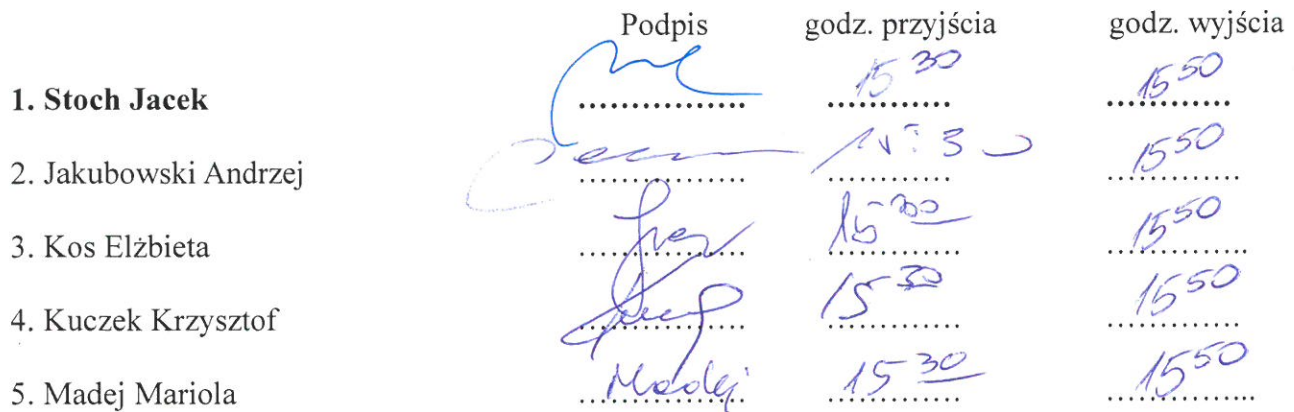 Podpis godz. przyjścia godz. wyjścia
1. Stoch Jacek .................. 15 30 15 50
2. Jakubowski Andrzej .................. 15:30 15 50
3. Kos Elżbieta .................. 15 30 15 50
4. Kuczek Krzysztof .................. 15 30 15 50
5. Madej Mariola Madej 15 30 15 50